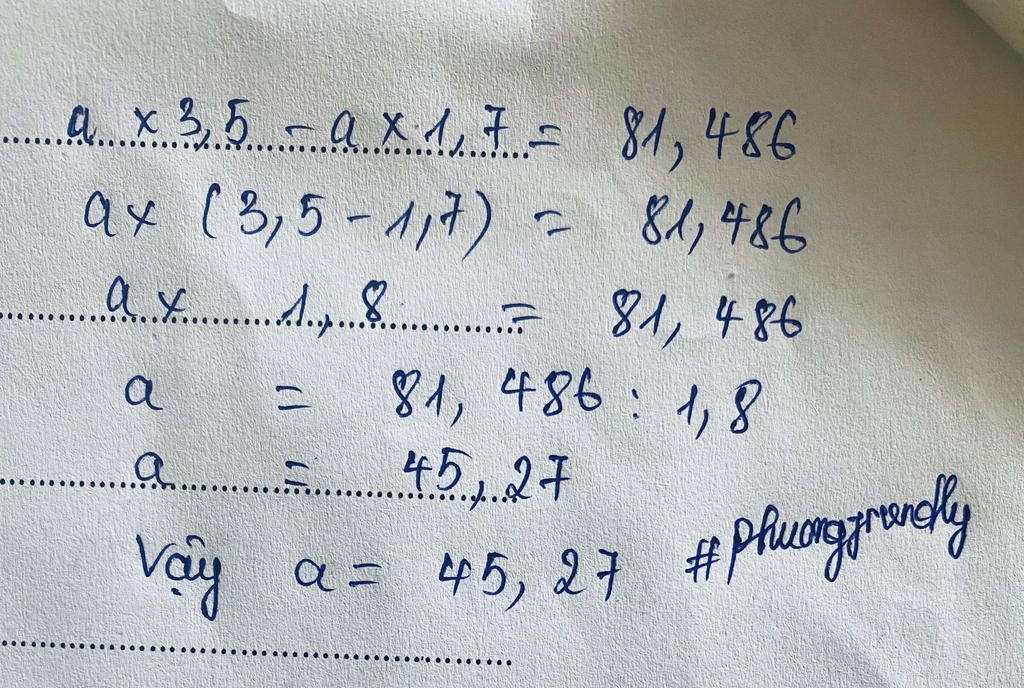 a x 3,5 - a x 1,7 = 81,486
a x (3,5 - 1,7) = 81,486
a x 1,8 = 81,486
a = 81,486 : 1,8
a = 45,27
Vậy a = 45,27 #phuongfriendly